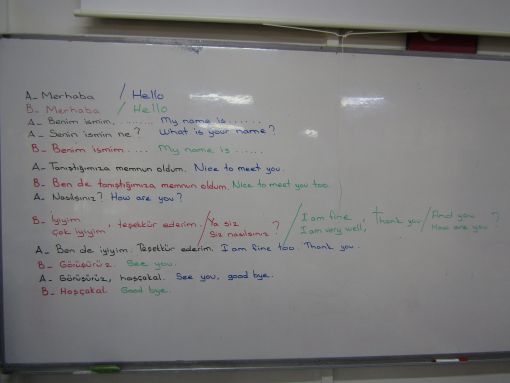 A- Merhaba / Hello
B- Merhaba / Hello
A- Benim ismim.......... My name is ......
A- Senin ismin ne? What is your name?
B- Benim ismim .... My name is ......
A- Tanıştığımıza memnun oldum. Nice to meet you.
B- Ben de tanıştığımıza memnun oldum. Nice to meet you too.
A- Nasılsınız? How are you?
B- İyiyim / Ya siz / I am fine / And you
çok iyiyim, teşekkür ederim. Siz nasılsınız? I am very well, thank you How are you?
A- Ben de iyiyim. Teşekkür ederim. I am fine too. Thank you.
B- Görüşürüz. See you.
A- Görüşürüz, hoşçakal. See you, good bye.
B- Hoşçakal. Good bye.